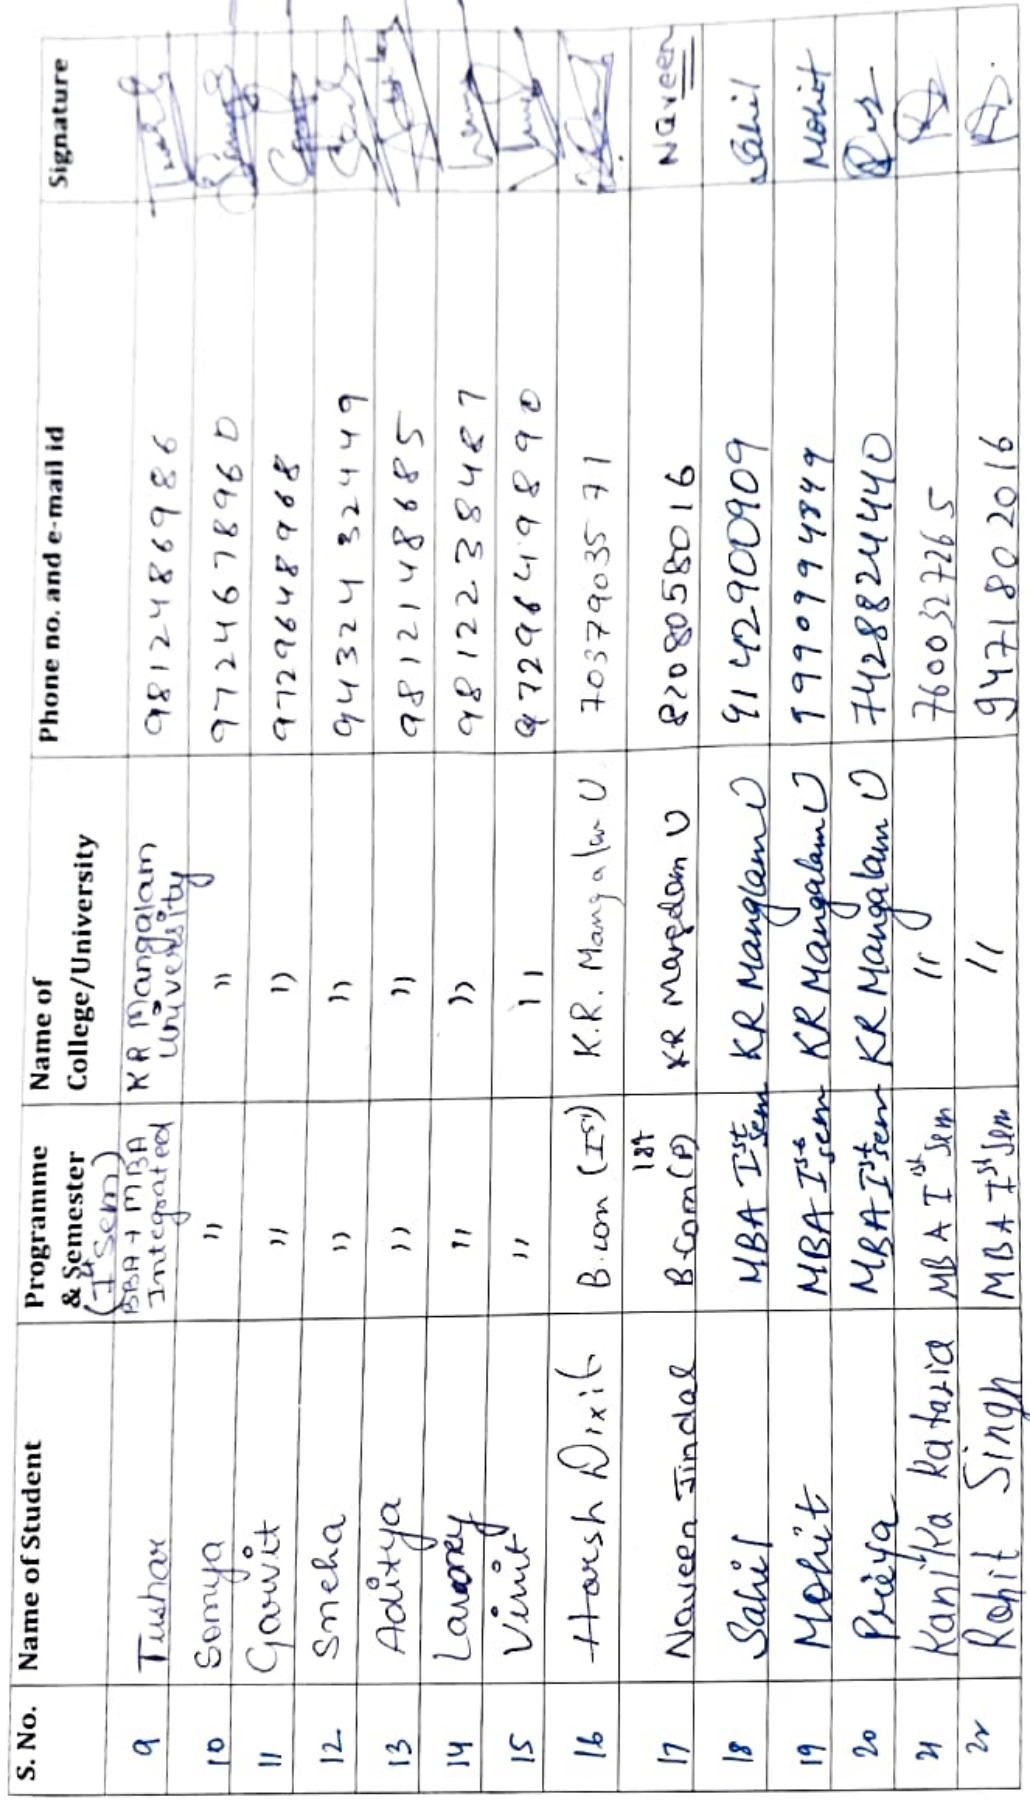 S. No. Name of Student Programme & Semester Name of College/University Phone no. and e-mail id Signature
9 Tushar (Ist Sem) BBA + MBA Integrated KR Mangalam University 9812486986
10 Somya " " 9724678960
11 Garvit " " 9729648968
12 Sneha " " 9432432449
13 Aditya " " 9812148685
14 " " 9812238487
15 Vinit " " 9729649890
16 Harsh Dixit B.com (Ist) K.R. Mangalam U. 7037903571
17 Naveen Jindal B.Com(P) 1st KR Mangalam U 8208058016 Naveen
18 Sahil MBA Ist sem KR Manglam U 9142900909 Sahil
19 Mohit MBA Ist sem KR Mangalam U 9990994849 Mohit
20 Priya MBA Ist sem KR Mangalam U 7428824440
21 Kanika Kataria MBA Ist Sem " 7600327265
22 Rohit Singh MBA Ist Sem " 9471802016